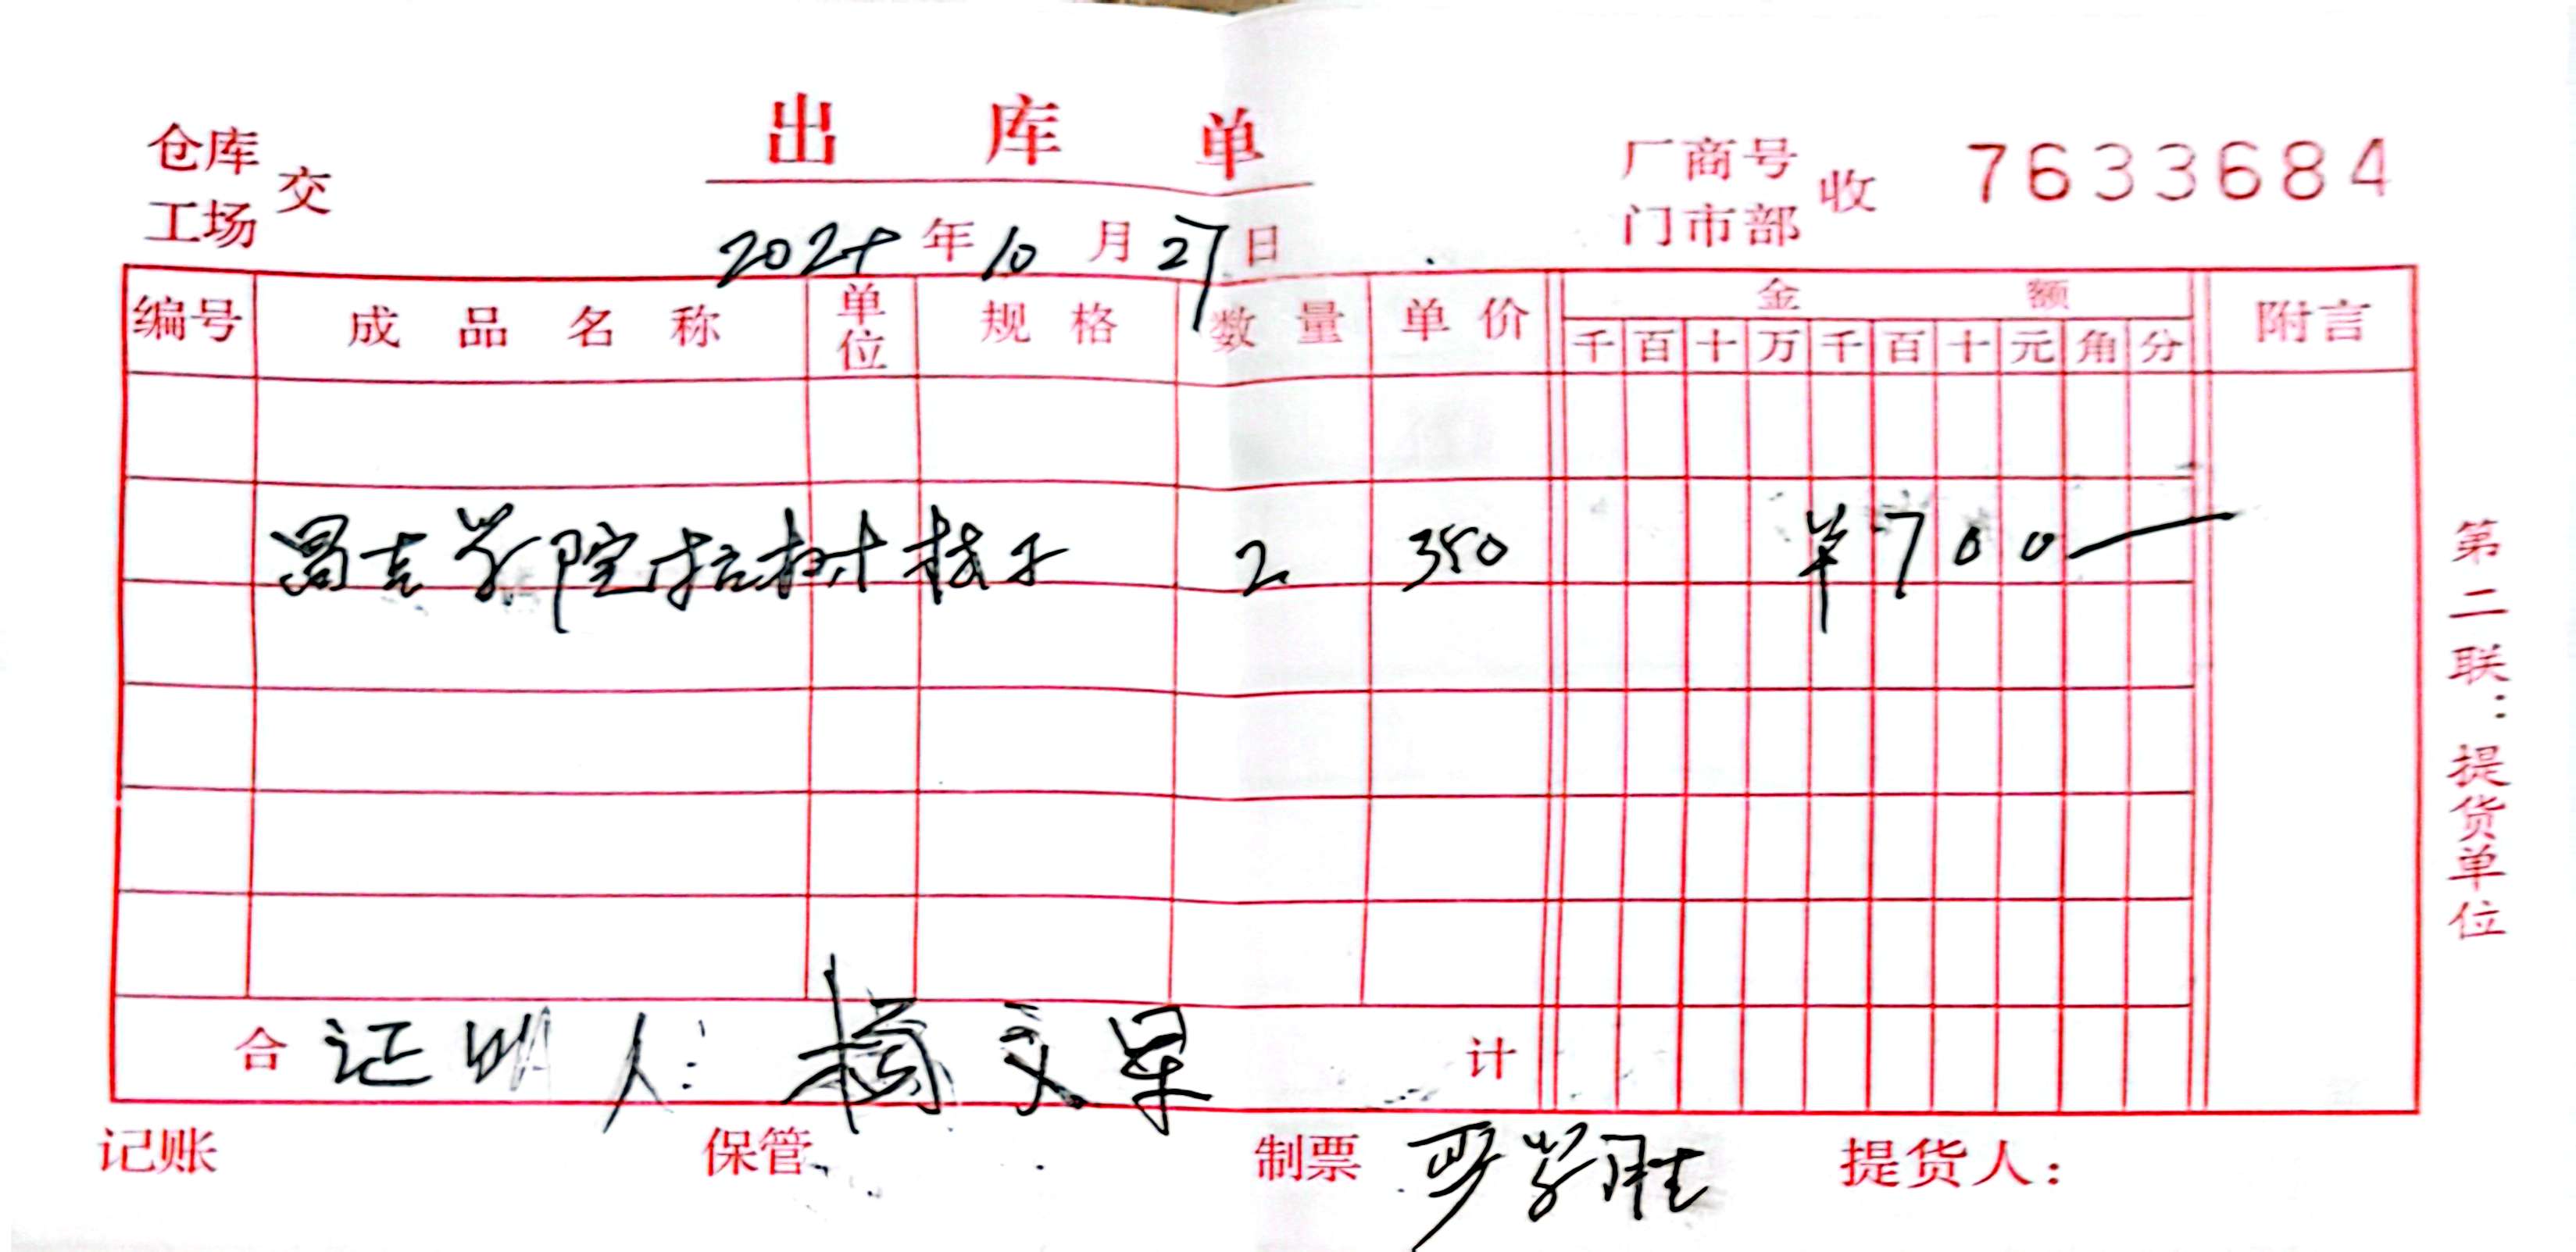 出库单
仓库
工场 交
厂商号
门市部 收 7633684
年10月27日
编号 成品名称 单位 规格 数量 单价 金额 附言
千百十万千百十元角分
昌吉学院拉树枝子 2 350 ¥700
合 证明人: 计
第二联:提货单位
记账 保管 制票 罗学胜 提货人: